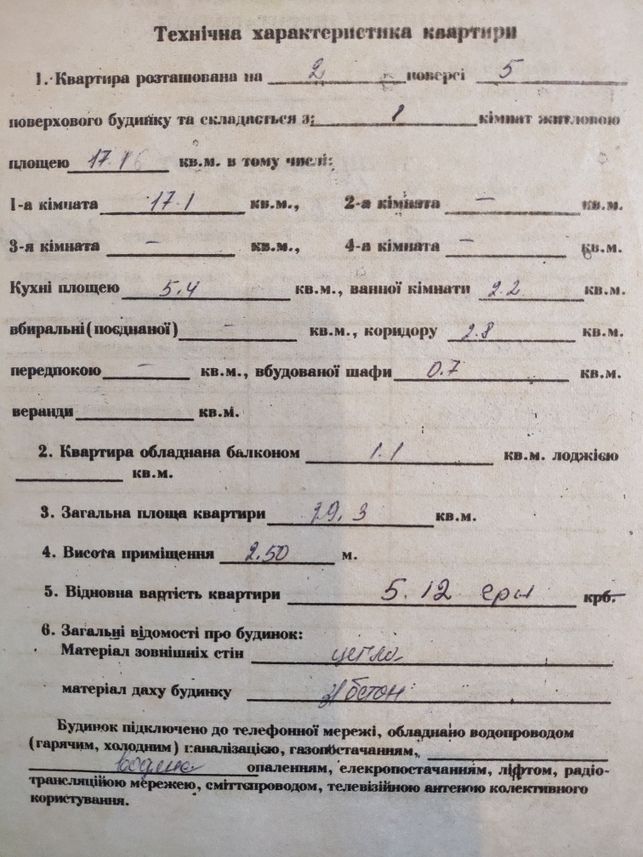 Технічна характеристика квартири
1. Квартира розташована на 2 поверсі 5
поверхового будинку та складається з: 1 кімнат житловою
площею 17.1 кв.м. в тому числі:
1-а кімната 17.1 кв.м., 2-а кімната — кв.м.
3-я кімната — кв.м., 4-а кімната — кв.м.
Кухні площею 5.4 кв.м., ванної кімнати 2.2 кв.м.
вбиральні(поєднаної) — кв.м., коридору 2.8 кв.м.
передпокою — кв.м., вбудованої шафи 0.7 кв.м.
веранди кв.м.
2. Квартира обладнана балконом 1.1 кв.м. лоджією
кв.м.
3. Загальна площа квартири 29.3 кв.м.
4. Висота приміщення 2.50 м.
5. Відновна вартість квартири 5.12 грн крб.
6. Загальні відомості про будинок:
Матеріал зовнішніх стін цегла
матеріал даху будинку з/бетон
Будинок підключено до телефонної мережі, обладнано водопроводом
(гарячим, холодним) каналізацією, газопостачанням,
водяне опаленням, елекропостачанням, ліфтом, радіо-
трансляційою мережею, сміттєпроводом, телевізійною антеною колективного
користування.